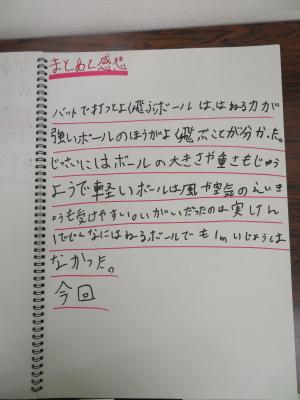 まとめと感想
バットで打つとよく飛ぶボールは、はねる力が
強いボールのほうがよく飛ぶことが分かった。
じっさいにはボールの大きさや重さもじゅう
ようで軽いボールは風や空気のえいき
ょうも受けやすい。いがいだったのは実けん
1でどんなにはねるボールでも1mいじょうは
なかった。
今回